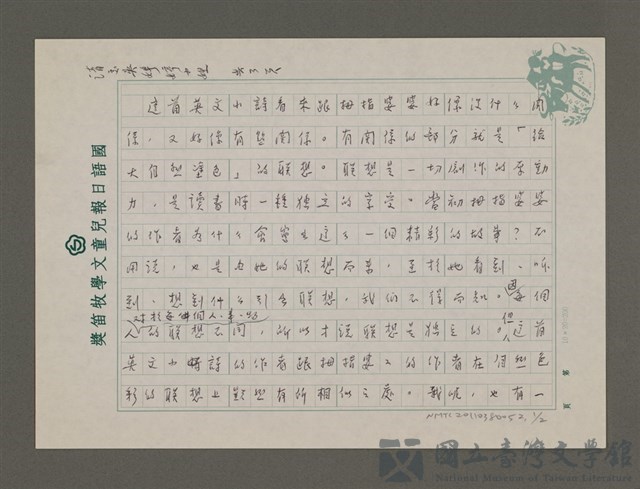 這首英文小詩看來跟拇指婆婆好像沒什么關
係,又好像有些關係。有關係的部分就是「給
大自然塗色」的联想。联想是一切創作的原動
力,是讀者時一種独立的享受。當初拇指婆婆
的作者為什么會寫出這么一個精彩的故事?不
用說,也是由她的联想而業,至於她看到、听
到、想到什么引會联想,我們不得而知。因每個
對於每件個人、事、物
人的联想不同,所以才說联想是独立的。但這首
英文小詩的作者跟拇指婆婆的作者在自然色
彩的联想上顯然有所相似之處。我呢,也有一
國語日報兒童文學牧笛獎
第 頁
NMTL20110380052, 1/2
國立臺灣文學館
National Museum of Taiwan Literature